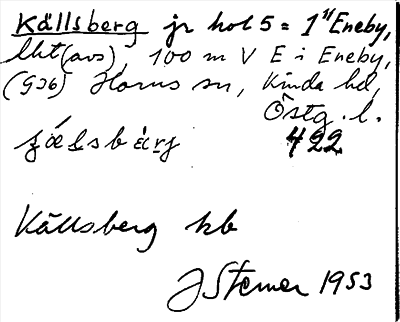 Källsberg jr hol 5 = 1⁄1 Eneby,
lht (avs), 100 m V E i Eneby,
(G36) Horns sn, Kinda hd,
Östg. l.
422
Källsberg kb
J Sterner 1953